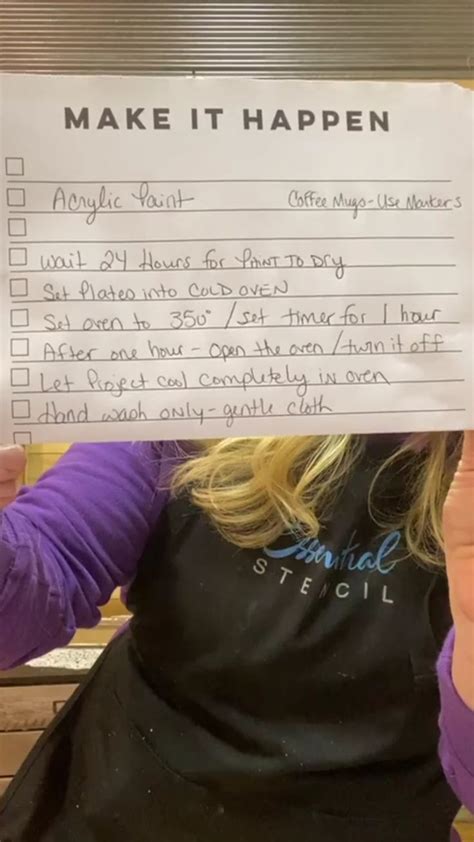 MAKE IT HAPPEN
Acrylic Paint Coffee Mugs - Use Markers
Wait 24 Hours for PAINT TO Dry
Set Plates into COLD OVEN
Set oven to 350° / set timer for 1 hour
After one hour - open the oven / turn it off
Let Project cool completely in oven
Hand wash only - gentle cloth
Essential
STENCIL